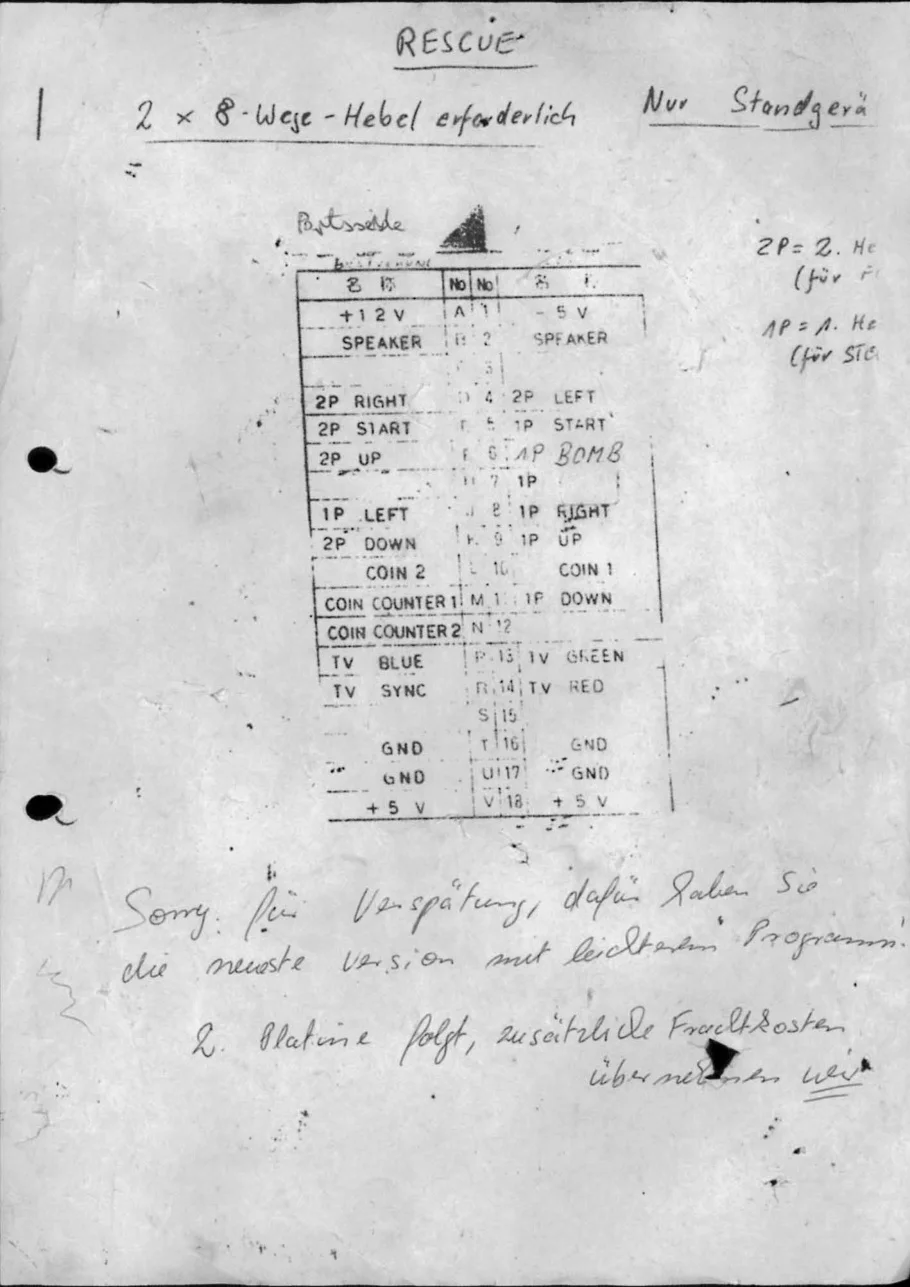 RESCUE
2 x 8-Wege-Hebel erforderlich Nur Standgerä
2P = 2. He
(für F
1P = 1. He
(für STE
No No
+12V A 1 -5V
SPEAKER B 2 SPEAKER
3
2P RIGHT D 4 2P LEFT
2P START E 5 1P START
2P UP F 6 1P BOMB
H 7 1P
1P LEFT J 8 1P RIGHT
2P DOWN K 9 1P UP
COIN 2 L 10 COIN 1
COIN COUNTER 1 M 11 1P DOWN
COIN COUNTER 2 N 12
TV BLUE P 13 TV GREEN
TV SYNC R 14 TV RED
S 15
GND T 16 GND
GND U 17 GND
+5V V 18 +5V
Sorry für Verspätung, dafür haben Sie
die neueste Version mit leichterem Programm.
2. Platine folgt, zusätzliche Frachtkosten
übernehmen wir